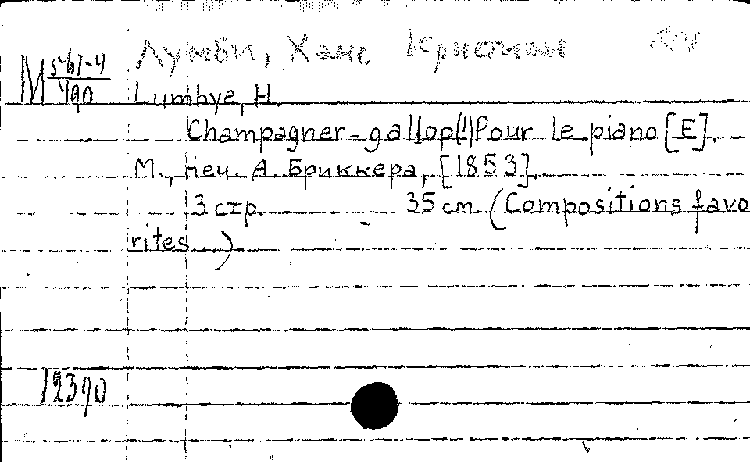 Лумби, Ханс Кристиан
М 561-4/790
Lumbye, H.
Champagner-gallop(!) Pour le piano [E].
М., печ. А. Бриккера, [1853].
3 стр. 35 см (Compositions favo
rites )
12390